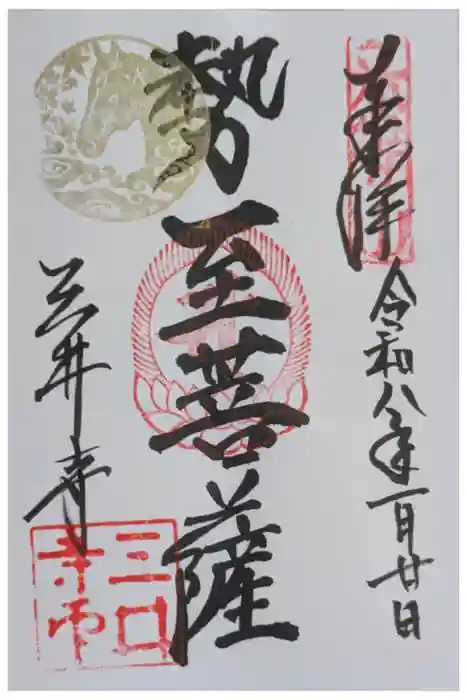 奉拝
令和八年一月廿日
勢至菩薩
三井寺